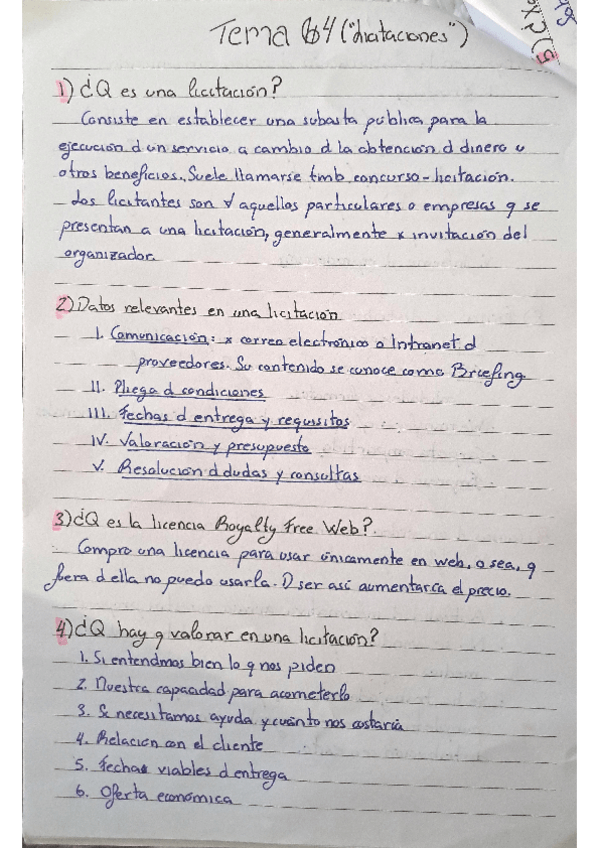 Tema 4 ("Licitaciones")
1) ¿Q es una licitación?
Consiste en establecer una subasta pública para la
ejecución d un servicio a cambio d la obtención d dinero u
otros beneficios. Suele llamarse tmb concurso-licitación.
Los licitantes son ∀ aquellos particulares o empresas q se
presentan a una licitación, generalmente x invitación del
organizador.
2) Datos relevantes en una licitación
I. Comunicación: x correo electrónico o Intranet d
proveedores. Su contenido se conoce como Briefing
II. Pliego d condiciones
III. Fechas d entrega y requisitos
IV. Valoración y presupuesto
V. Resolución d dudas y consultas
3) ¿Q es la licencia Royalty Free Web?
Compro una licencia para usar únicamente en web, o sea, q
fuera d ella no puedo usarla. D ser así aumentaría el precio.
4) ¿Q hay q valorar en una licitación?
1. Si entendmos bien lo q nos piden
2. Nuestra capacidad para acometerlo
3. Si necesitamos ayuda y cuánto nos costaría
4. Relación con el cliente
5. Fechas viables d entrega
6. Oferta económica